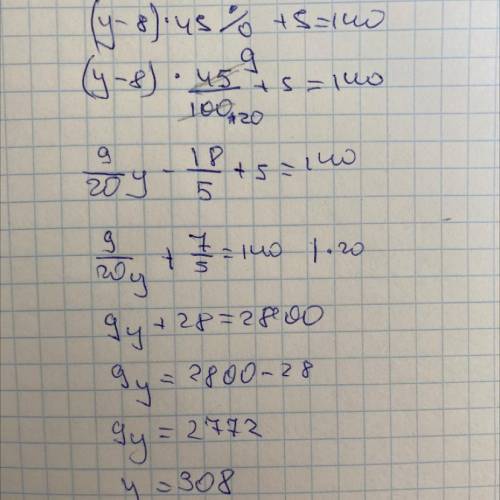 (y-8)·45% +5=140
(y-8) · 45/100 9/20 +5=140
9/20 y - 18/5 +5=140
9/20 y + 7/5 =140 |·20
9y +28=2800
9y =2800-28
9y =2772
y =308